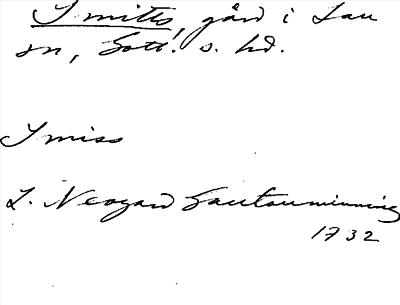 Smitts, gård i Lau
sn, Gotl. s. hd.
Smiss
L. Neogard Gautauminning
1732